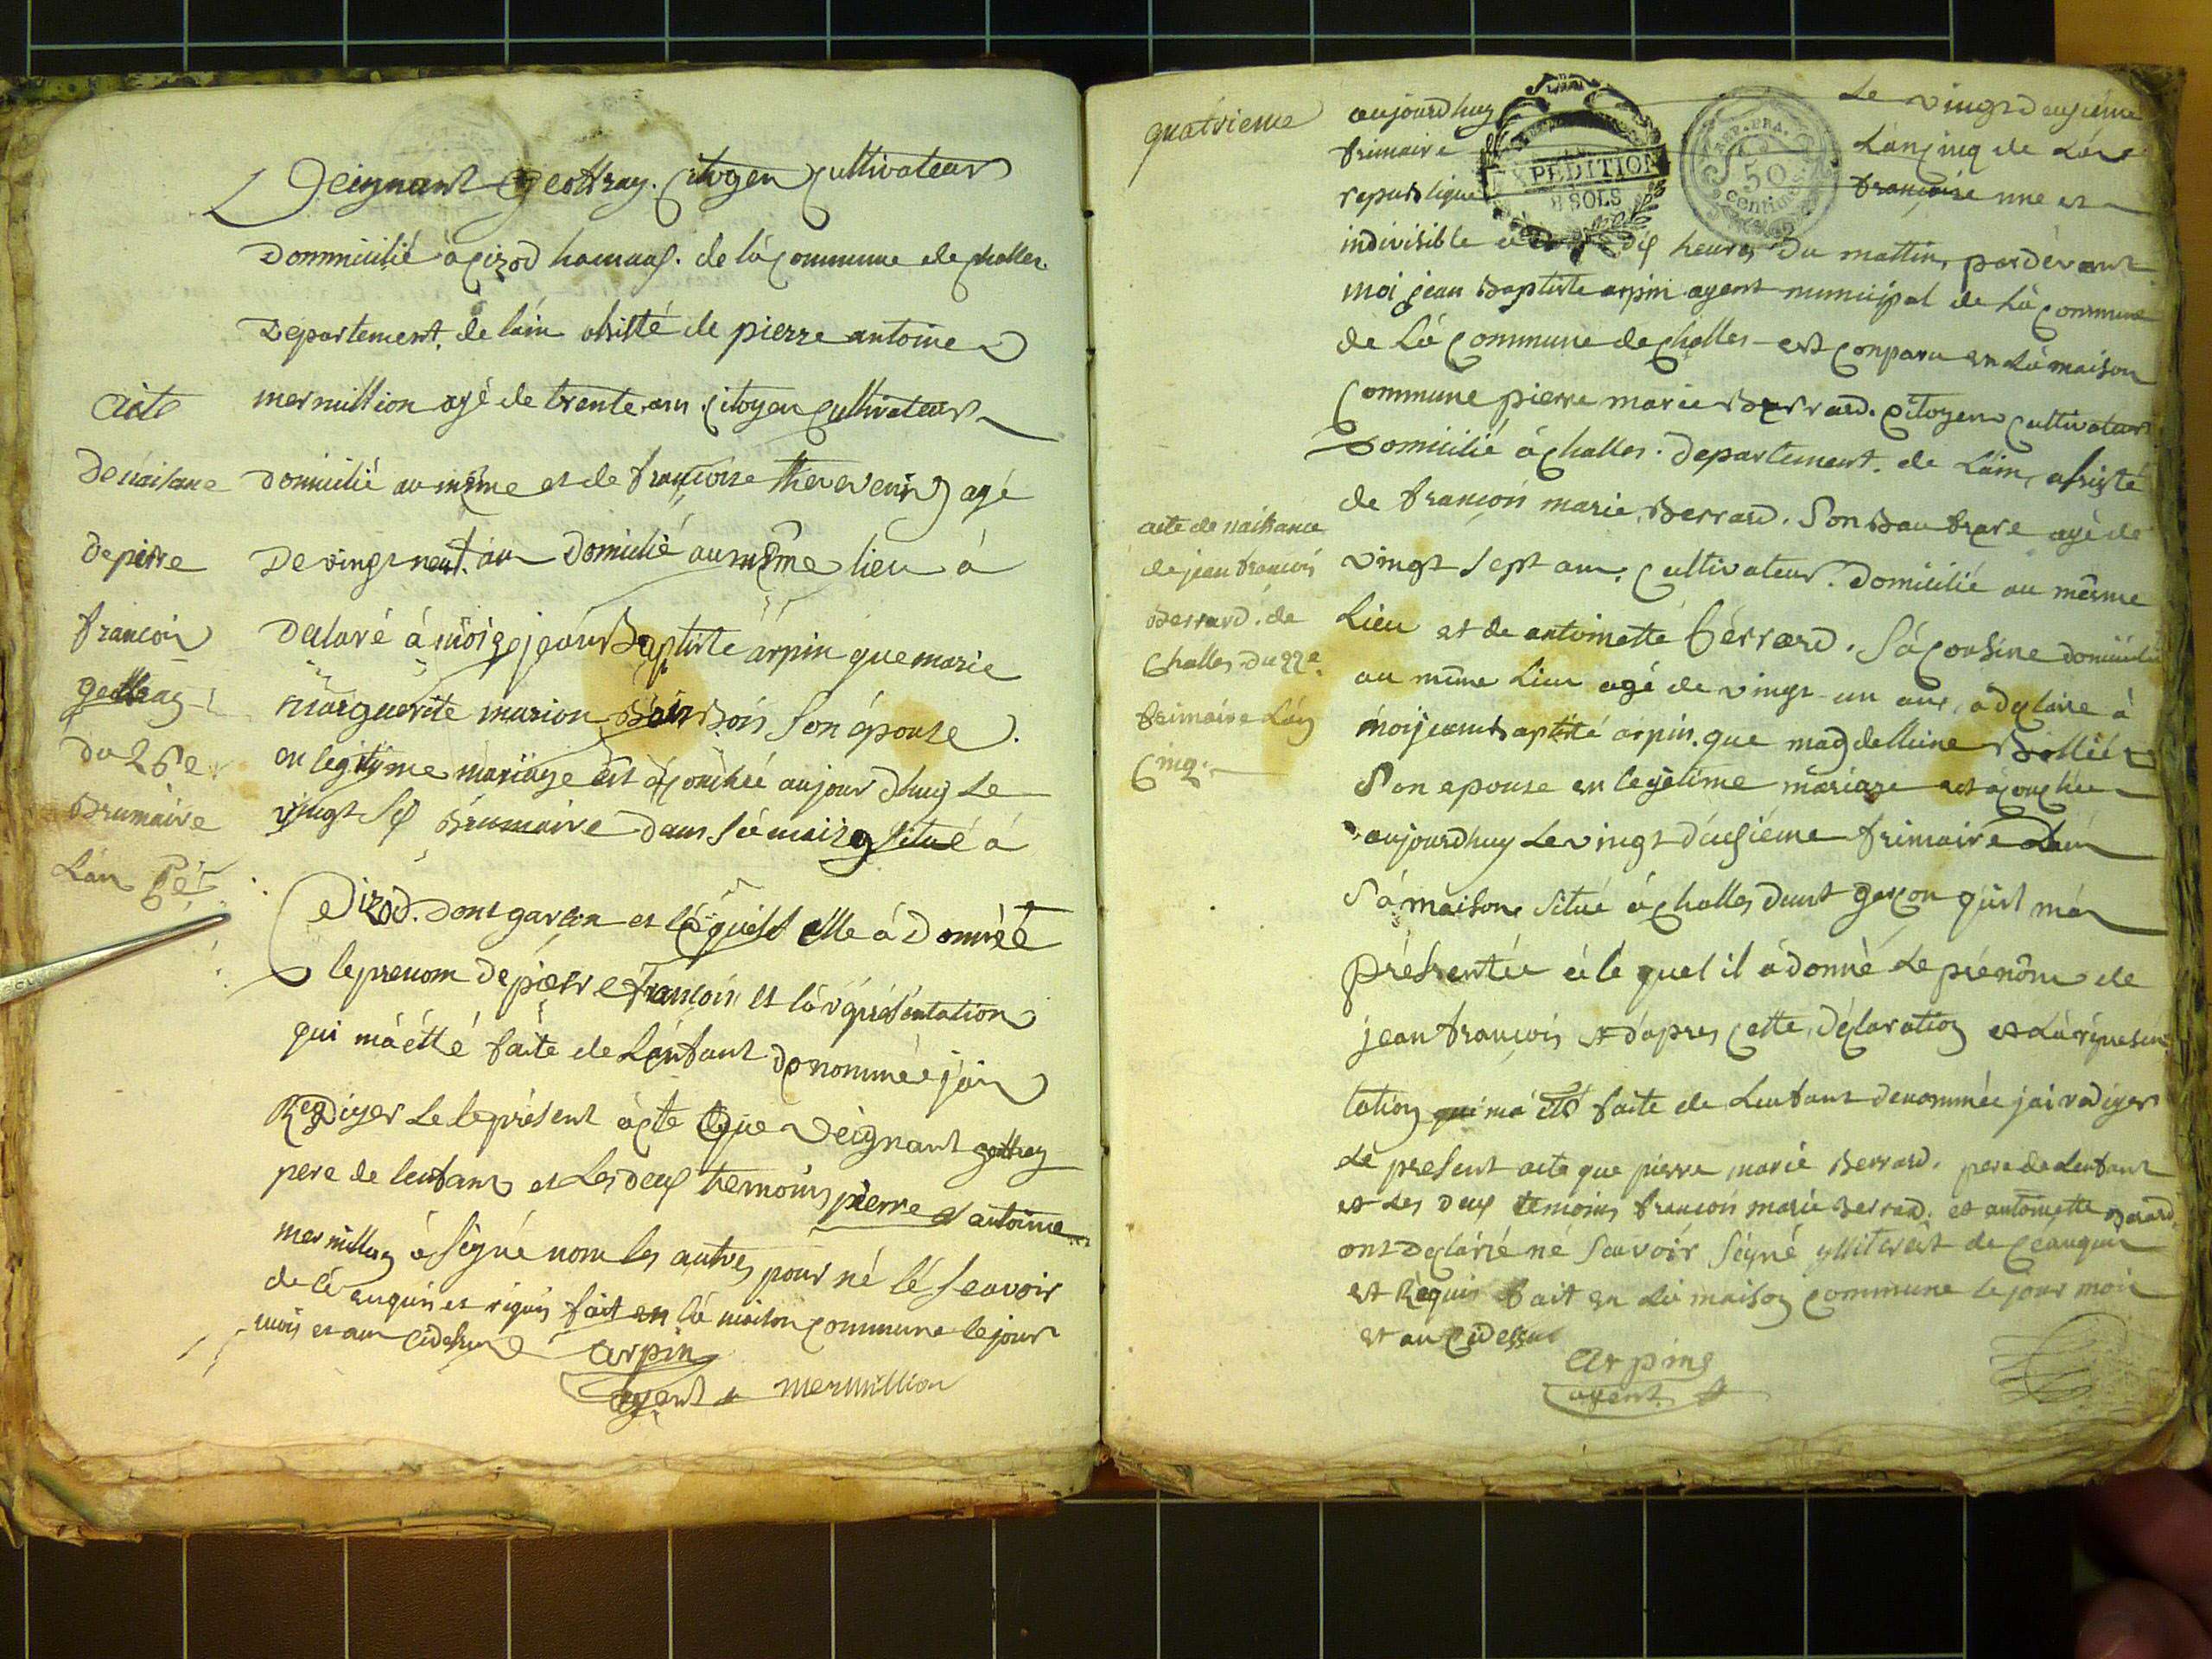 Deignant geoffray. citoyen cultivateur
Dommicilié à cizod hamaux. de là commune de challes
Departement. de lain assisté de pierre antoine
mermillion agé de trente ans citoyen cultivateur
Domicilié au même et de françoise thevenin agé
De vingt neuf. ans Domicilié au même lieu à
Declaré à moi jean Baptiste arpin que marie
marguerite marion Bois son épouse.
en legityme mariage est acouchée aujourdhuy Le
vingt six Brumaire dans sà maison situé à
Cizod. dont garson et lequel elle à Donnée
le prenom de pierre françois et la représentation
qui mà étté faite de Lenfant denommée jai
Rediger Le le présent acte que Deignant geoffray
pere de lenfant et Les deux temoins pierre antoine
mermillion à signé non les autres pour né lé scavoir
de cé enquis et riquis fait en là maison commune le jour
mois et an cidessus
arpin
agent
mermillion
acte
de naisane
de pierre
françois
geoffray
du 26e
Brumaire
Lan
quatrieme
aujourdhuy Le vingt deusième
frimaire Lan cinq de Lére
republique française une et
indivisible à dix heures du mattin, pardevant
moi jean Baptiste arpin agent municipal de Là commune
de Là commune de challes est conparu en Là maison
Commune pierre marie Berrard. citoyen cultivateur
Domicilié à challes. departement. de Lain, assisté
de françois marie Berrard. son Baufrare agé de
vingt sept ans. cultivateur. domicilié au même
Lieu et de antoinette Bérrard. Sà cousine domicilié
au même Lieu agé de vingt un ans, à declaré à
moi jean baptisté arpin. que magdelleine
Son epouse en legétime mariage est acouchée
aujourdhuy Le vingt deusiéme frimaire dans
Sà maison situé à challes dunt garçon quil mà
présentée et le quel il à donné Le prénom de
jean françois et dapres cette déclaration et Là représen
tation qui mà étté faite de Lenfant denommée jai rediger
Le present acte que pierre marie Berrard. pere de Lenfant
et Les deux temoins françois marie Berrard. et antoinette Berard
ont declárié né scavoir signé de ce anquis
et Réquis fait en Là maison commune le jour mois
et an cidessus
arpin
agent
acte de naissance
de jean françois
Berrard. de
Challes du 22e
frimaire Lan
Cinq.
EXPEDITION
8 SOLS
REP. FRA.
50
centimes